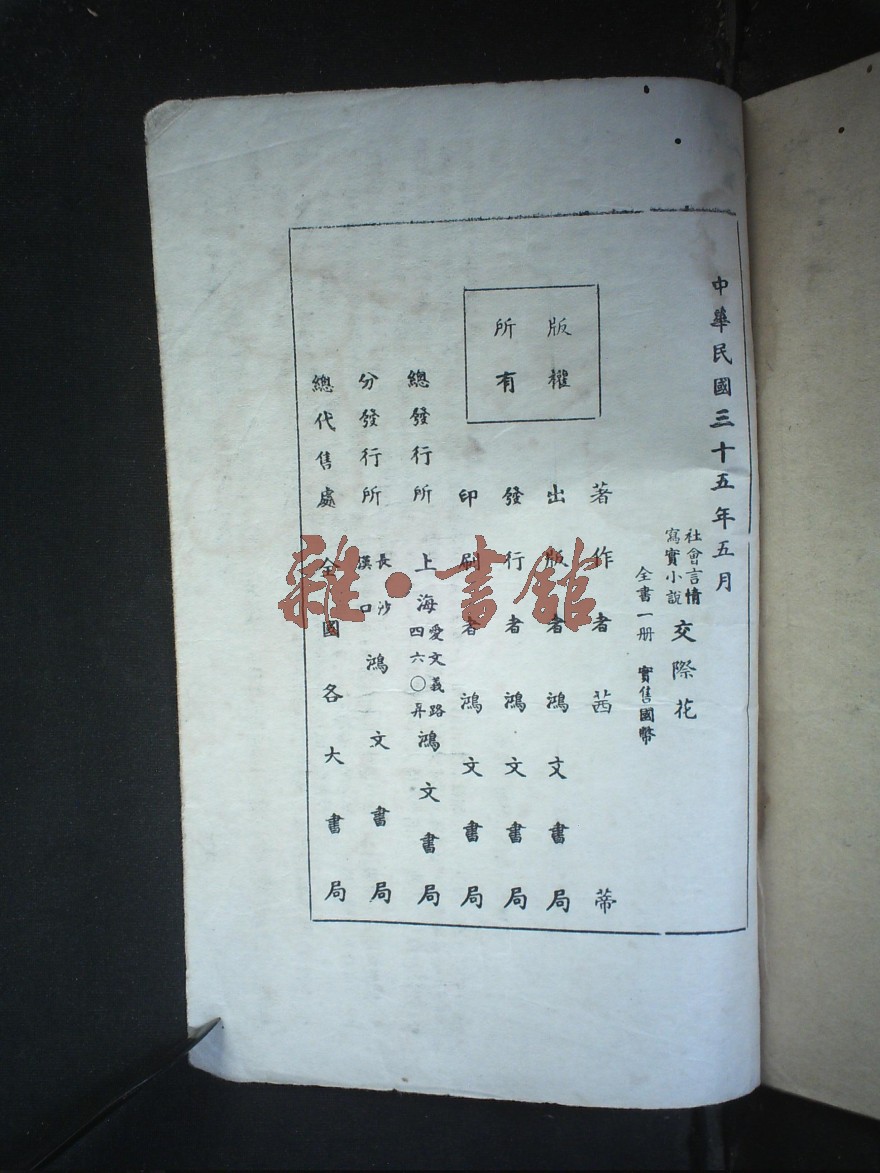 中華民國三十五年五月
社會言情
寫實小說
交際花
全書一册 實售國幣
版權
所有
著作者 茜蒂
出版者 鴻文書局
發行者 鴻文書局
印刷者 鴻文書局
總發行所 上海愛文義路
四六〇弄 鴻文書局
分發行所 長沙
漢口 鴻文書局
總代售處 全國各大書局
雜·書館